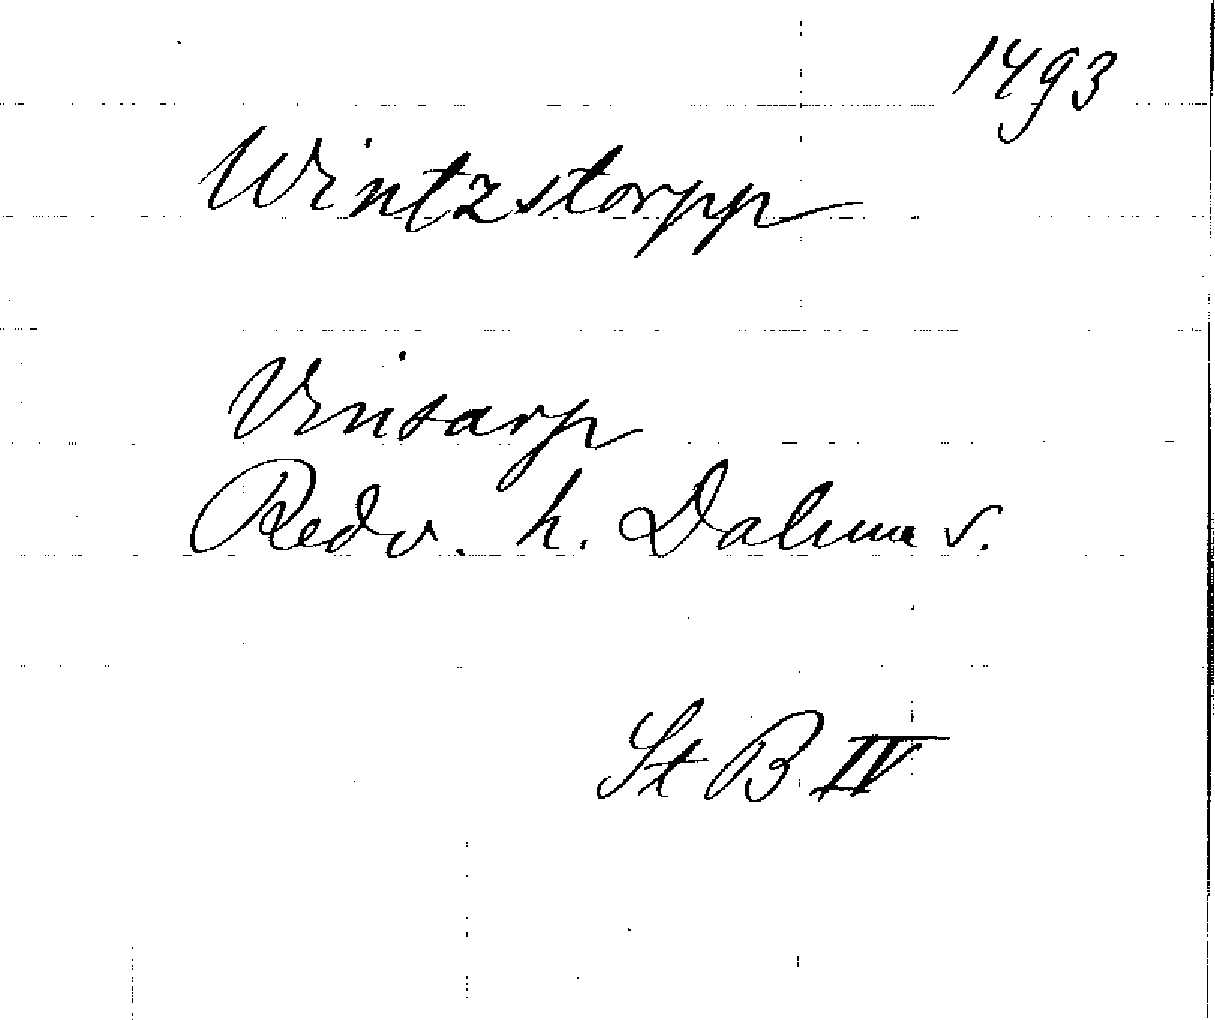 1493
Wintzstorpp
Vintarp
Redv. h. Dalum s.
St B IV